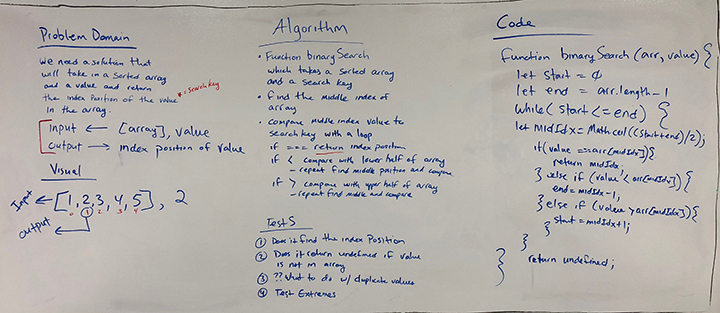 Problem Domain
we need a solution that
will take in a sorted array
and a value and return
the index position of the value * = search key
in the array.
input ← [array], value
output → index position of value
Visual
Input ← [1,2,3,4,5], 2
0 1 2 3 4
output
Algorithm
• Function binary Search
which takes a sorted array
and a search key
• find the middle index of
array
• Compare middle index value to
search key with a loop
if === return index position
if < compare with lower half of array
- repeat find middle position and compare
if > compare with upper half of array
- repeat find middle and compare
Tests
① Does it find the index Position
② Does it return undefined if value
is not in array
③ ?? What to do w/ duplicate values
④ Test Extremes
Code
function binarySearch (arr, value) {
let start = 0
let end = arr.length-1
while( start <= end) {
let midIdx = Math.ceil((start+end)/2);
if(value === arr[midIdx]{
return midIdx;
} else if (value < arr[midIdx]) {
end = midIdx-1;
} else if (value > arr[midIdx]) {
start = midIdx+1;
}
}
return undefined;
}